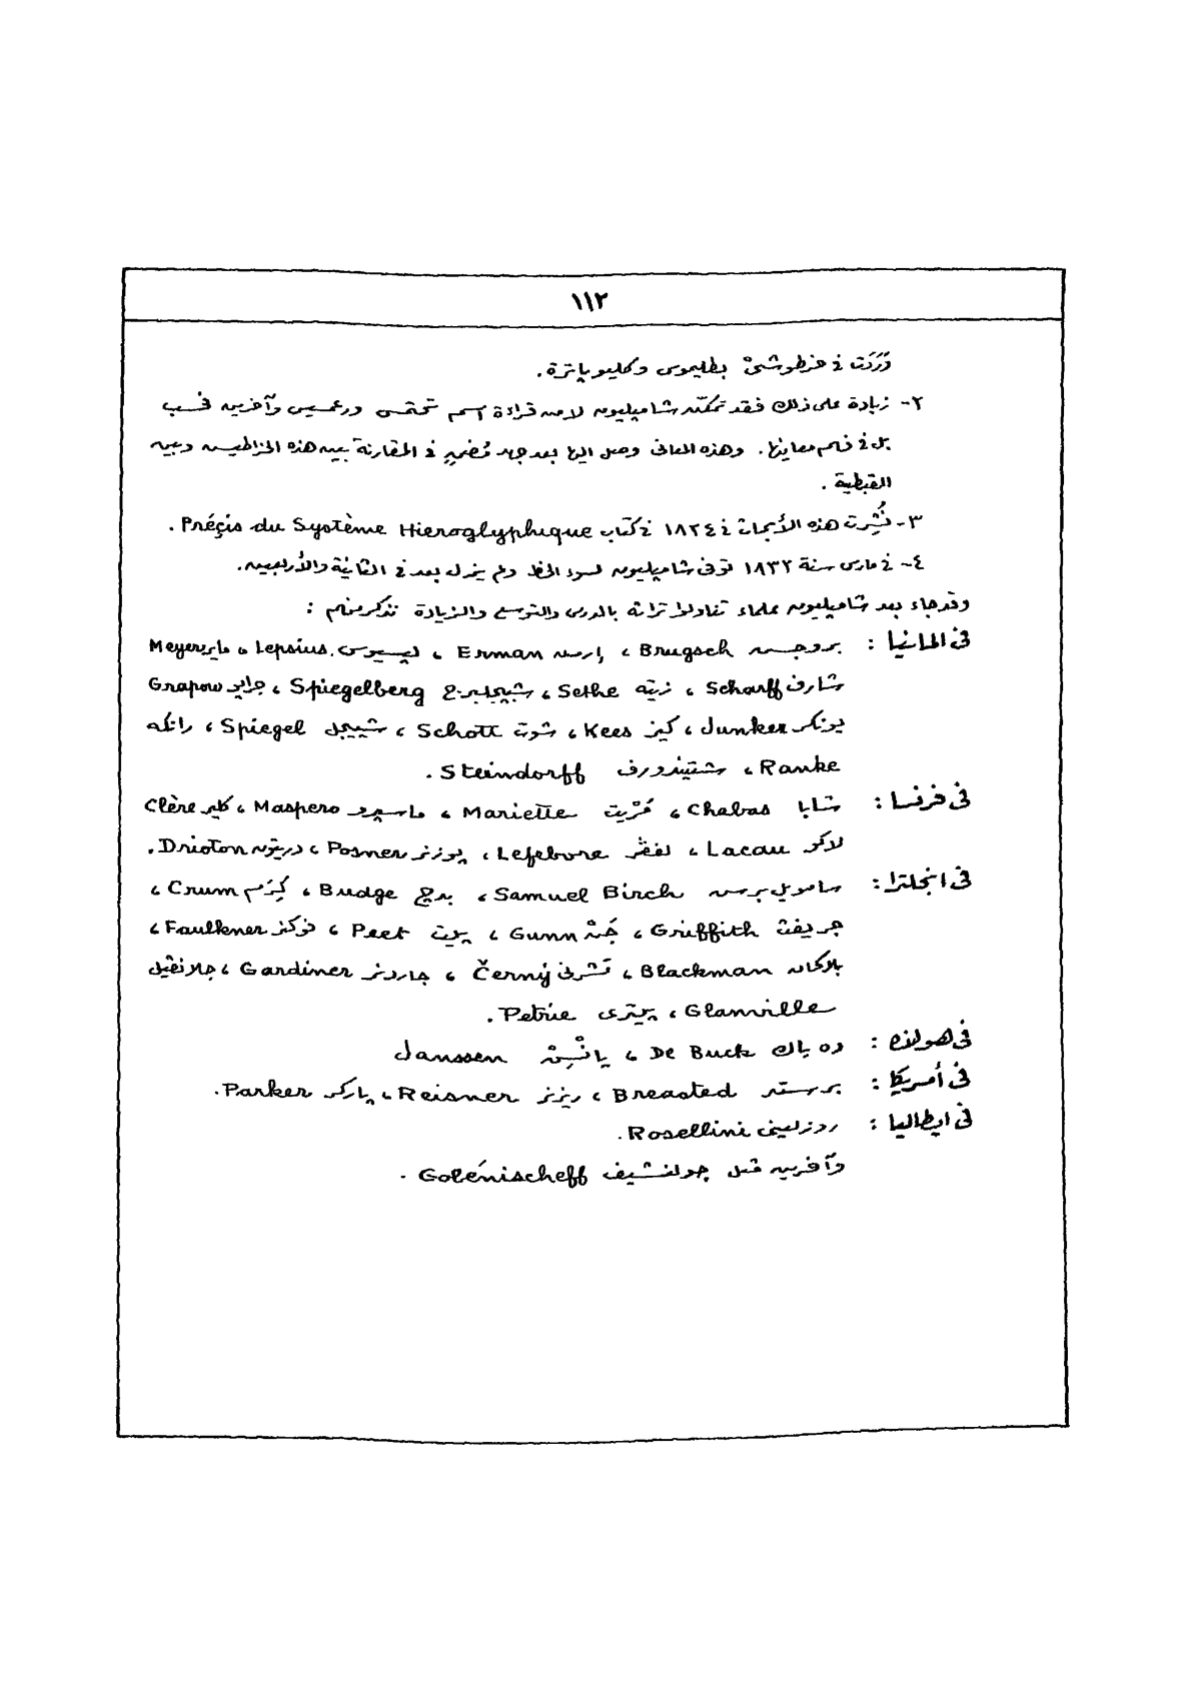 ١١٢
وَرَدَت فى خرطوشىْ بطليموس وكليوباترة .
٢- زيادة على ذلك فقد تمكّن شامپليون لا من قراءة اسم تحتمس ورعمسيس وآخرين فحسب
بل فى فهم معانيها . وهذه المعانى وصل اليها بعد جهد مُضنٍ فى المقارنة بين هذه الخراطيش وبين
القبطية .
٣- نُشِرت هذه الأبحاث فى ١٨٢٤ فى كتاب Préçis du Système Hieroglyphique .
٤- فى مارس سنة ١٨٣٢ توفى شامپليون لسوء الحظ ولم يزل بعد فى الثانية والأربعين .
وقد جاء بعد شامپليون علماء تناولوا تراثه بالدرس والتوسع والزيادة نذكر منهم :
فى المانيا : بروجش Brugsch ، إرمن Erman ، ليپسيوس Lepsius ، ماير Meyer
شارف Scharff ، زيته Sethe ، شپيجلبرج Spiegelberg ، جراپو Grapow
يونكر Junker ، كيز Kees ، شوت Schott ، شپيجل Spiegel ، رانكه
Ranke ، شتيندورف Steindorff .
فى فرنسا : شابا Chabas ، مَرْيت Mariette ، ماسپرو Maspero ، كلير Clère
لاكو Lacau ، لفڤر Lefebvre ، پوزنر Posner ، دريتون Drioton .
فى انجلترا : سامويل برش Samuel Birch ، بدج Budge ، كِرَم Crum ،
جريفث Griffith ، جَنْ Gunn ، پيت Peet ، فوكنر Faulkner ،
بلاكمان Blackman ، تشرنى Černý ، جاردنر Gardiner ، جلانڤيل
Glanville ، پيترى Petrie .
فى هولنده : ده باك De Buck ، يانْسِنْ Janssen
فى أمريكا : برستد Breasted ، ريزنر Reisner ، پاركر Parker .
فى ايطاليا : روزلينى Rosellini .
وآخرين مثل جولنشيف Golénischeff .